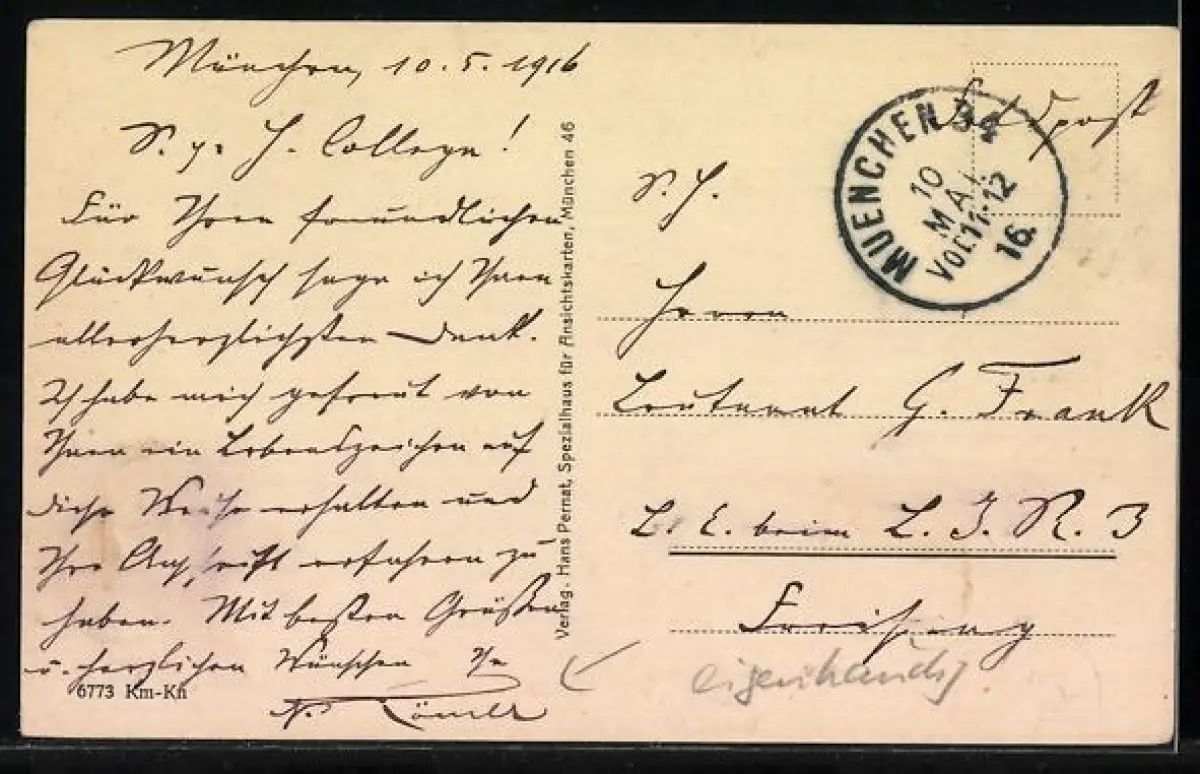 München, 10.5.1916
S. g. H. College!
Für Ihren freundlichen
Glückwunsch sage ich Ihnen
allerherzlichsten Dank.
Ich habe mich gefreut von
Ihnen ein Lebenszeichen auf
diese Weise erhalten und
Ihre Anschrift erfahren zu
haben. Mit besten Grüßen
u. herzlichen Wünschen Ihr
6773 Km-Kn
Verlag. Hans Pernat, Spezialhaus für Ansichtskarten, München 46
Feldpost
MUENCHEN 34
10
MAI
Vor.11-12
16.
S. H.
Herrn
Leutnant G. Frank
L. E. beim L. I. R. 3
Freising
eigenhändig.